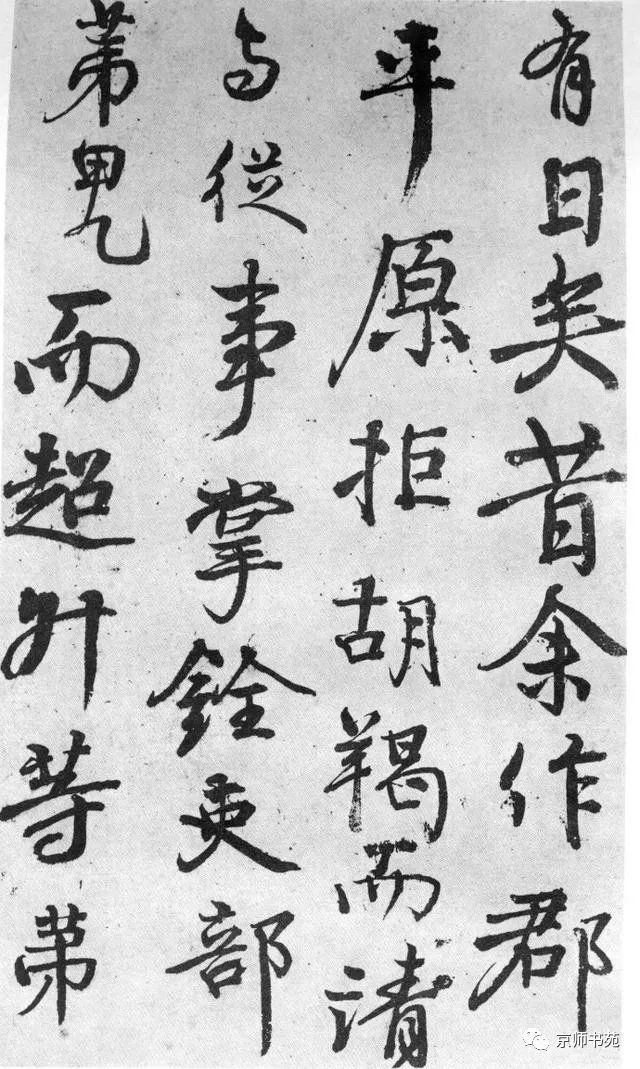 有日矣昔余作郡
平原拒胡羯而請
与從事掌銓吏部
苐甲乙而超升等苐
京师书苑